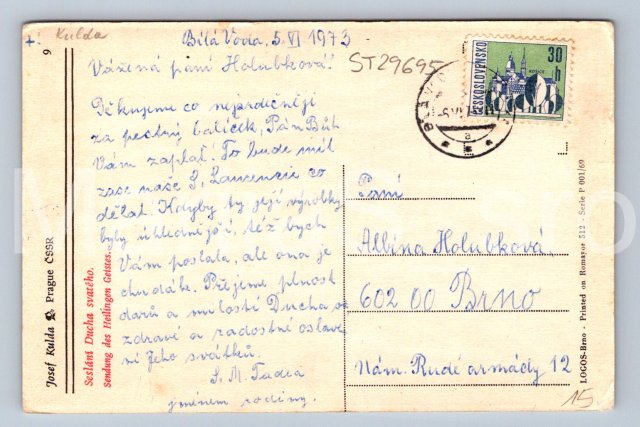 + Kulda
Bílá Voda, 5. VI 1973
ST29695
Vážená paní Holubková!
Děkujeme co nejsrdečněji
za pestrý balíček, Pán Bůh
Vám zaplať! To bude mít
zase naše S. Laurencie co
dělat. Kdyby ty její výrobky
byly úhlednější, též bych
Vám poslala, ale ona je
chudák. Přejeme plnost
darů a milostí Ducha sv.
zdravé a radostné oslave
ní Jeho svátků.
S. M. Tadea
jménem rodiny.
ČESKOSLOVENSKO
30 h
Paní
Albína Holubková,
602 00 Brno
Nám. Rudé armády 12
15
9
Josef Kulda Prague ČSSR
Seslání Ducha svatého.
Sendung des Heilingen Geistes.
LOGOS-Brno - Printed on Romayor 512 - Serie P 001/69